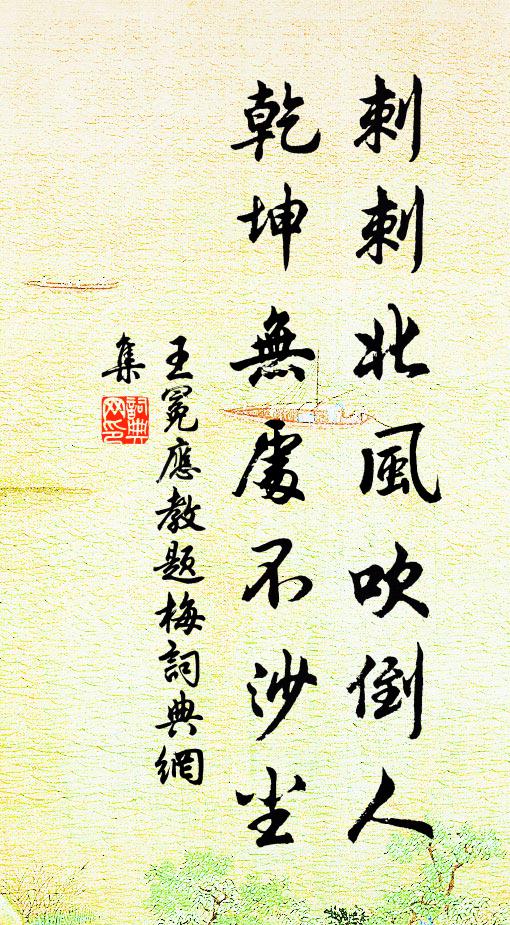 刺刺北風吹倒人
乾坤無處不沙尘
王冕應教題梅詞典網
集
詞典
网印